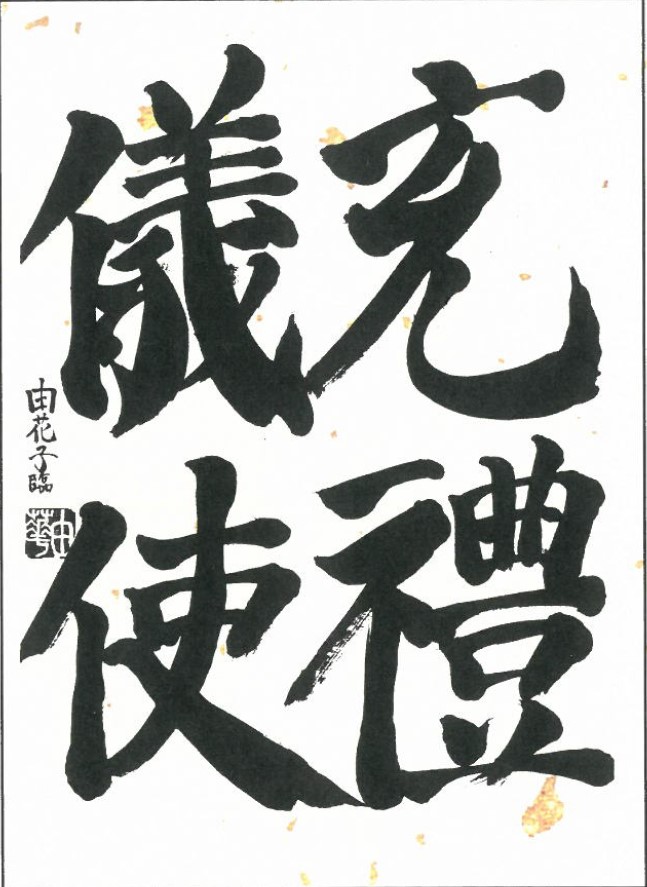 充禮
儀使
由花子臨
由華